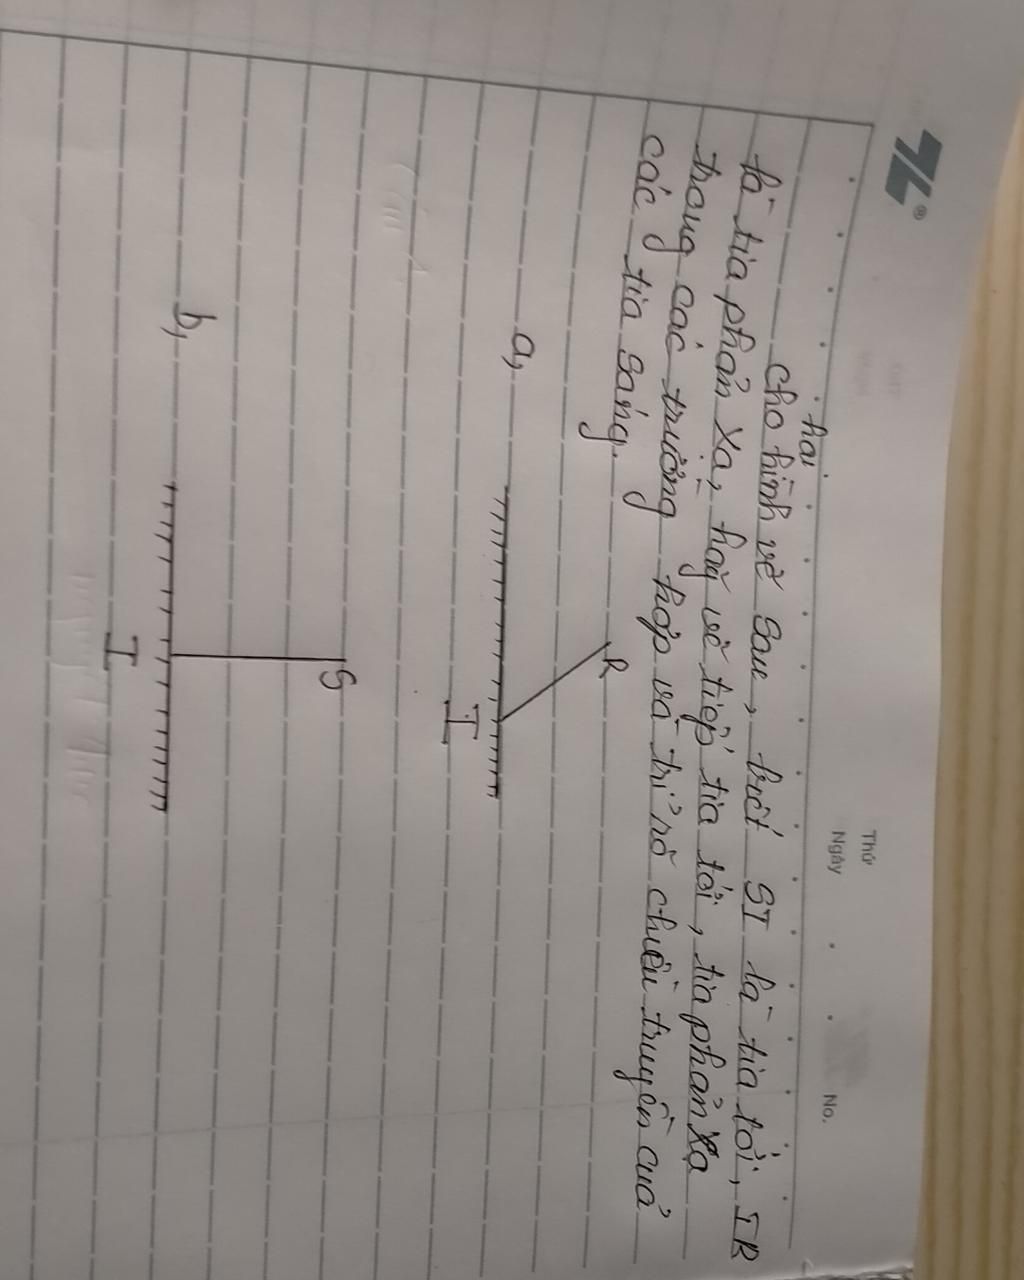 Thứ
Ngày
No.
hai
Cho hình vẽ sau, biết SI là tia tới, IR
là tia phản xạ, hãy vẽ tiếp tia tới, tia phản xạ
trong các trường hợp và chỉ rõ chiều truyền của
các tia sáng.
a,
R
I
b,
S
I